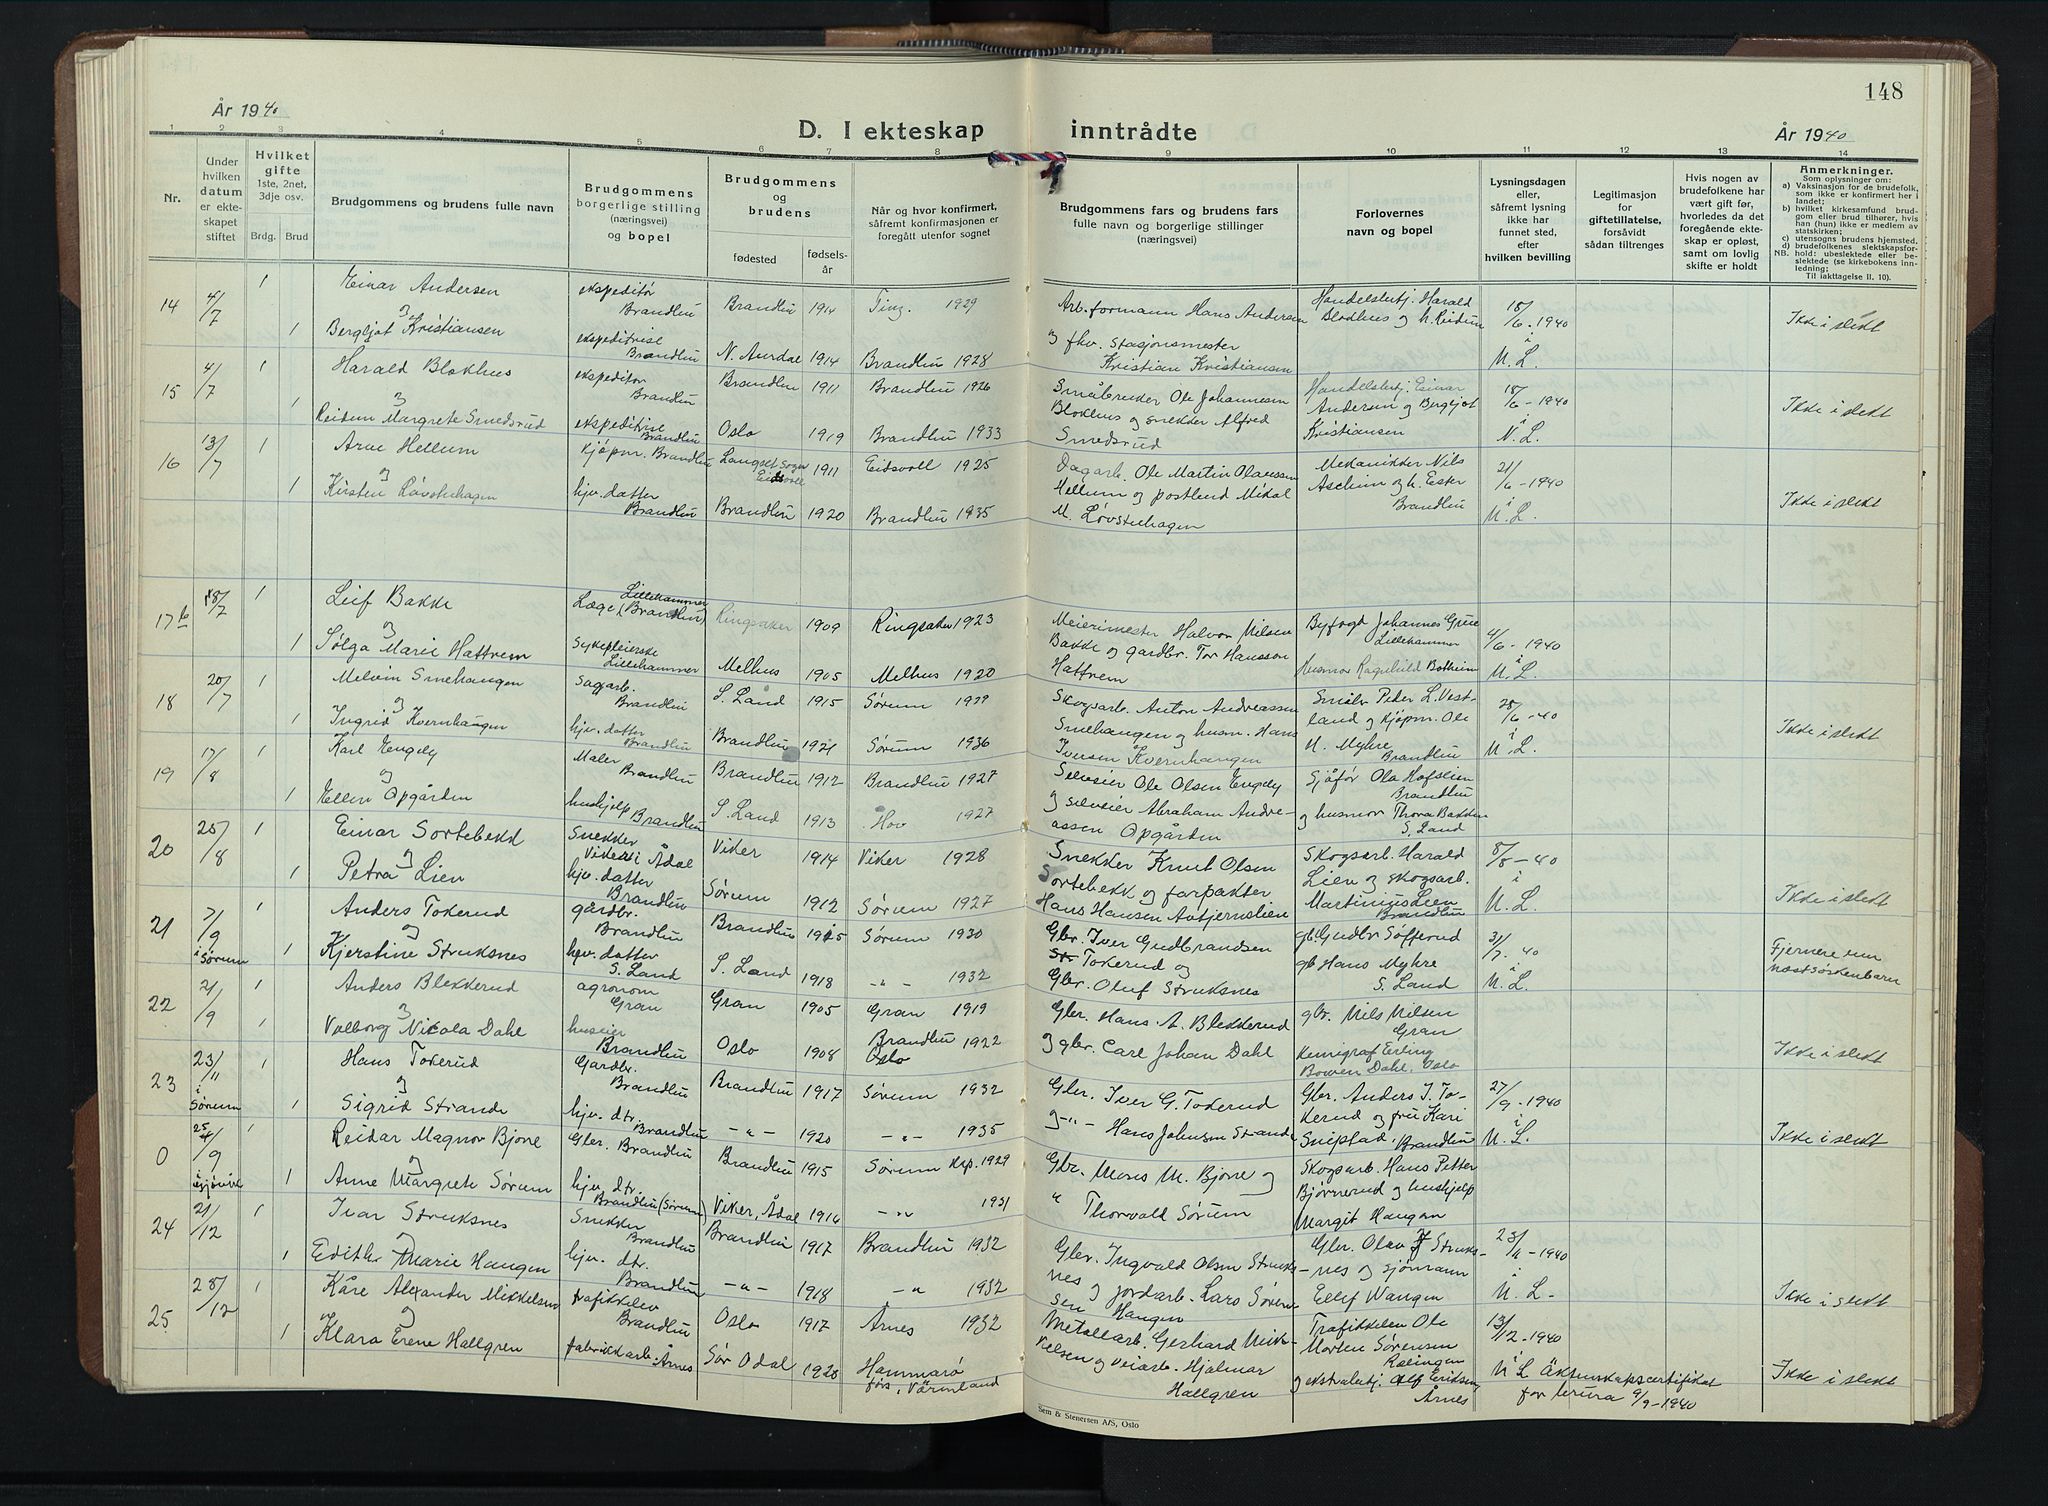 148
År 1940
D. I ekteskap inntrådte
År 1940
1 2 3 4 5 6 7 8 9 10 11 12 13 14
Nr.
Under hvilken datum er ekteskapet stiftet
Hvilket gifte 1ste, 2net, 3dje osv.
Brdg. Brud
Brudgommens og brudens fulle navn
Brudgommens borgerlige stilling (næringsvei) og bopel
Brudgommens og brudens
fødested
fødselsår
Når og hvor konfirmert, såfremt konfirmasjonen er foregått utenfor sognet
Brudgommens fars og brudens fars fulle navn og borgerlige stillinger (næringsvei)
Forlovernes navn og bopel
Lysningsdagen eller, såfremt lysning ikke har funnet sted, efter hvilken bevilling
Legitimasjon for giftetillatelse, forsåvidt sådan tiltrenges
Hvis nogen av brudefolkene har vært gift før, hvorledes da det foregående ekteskap er opløst, samt om lovlig skifte er holdt
Anmerkninger.
Som oplysninger om:
a) Vaksinasjon for de brudefolk, som ikke er konfirmert her i landet;
b) hvilket kirkesamfund brudgom eller brud tilhører, hvis han (hun) ikke er medlem av statskirken;
c) utensogns brudens hjemsted.
d) brudefolkenes slektskapsforhold: ubeslektede eller beslektede (se kirkebokens innledning;
NB. Til iakttagelse II. 10).
14 4/7 1 Einar Andersen ekspeditør Brandbu Brandbu 1914 Ting. 1929 Arb.formann Hans Andersen Handelsbetj. Harald Blokhus og h. Reidun 18/6-1940 i U.L. Ikke i slekt
og
1 Bergljot Kristiansen ekspeditrise Brandbu N. Aurdal 1914 Brandbu 1928 og fhv. stasjonsmester Kristian Kristiansen
15 4/7 1 Harald Blokhus ekspeditør Brandbu Brandbu 1911 Brandbu 1926 Småbruker Ole Johannesen Blokhus og snekker Alfred Smedsrud Handelsbetj. Einar Andersen og Bergljot Kristiansen 18/6-1940 i U.L. Ikke i slekt
og
1 Reidun Margrete Smedsrud ekspeditrise Brandbu Oslo 1919 Brandbu 1933
16 13/7 1 Arne Hellum kjøpm. Brandbu Langset sogn Eidsvoll 1911 Eidsvoll 1925 Dagarb. Ole Martin Olaussen Hellum og postbud Mikal M. Løvstuhagen Mekanikker Nils Aschim og h. Ester Brandbu 21/6-1940 i U.L. Ikke i slekt
og
1 Kirsten Løvstuhagen hjv. datter Brandbu Brandbu 1920 Brandbu 1935
17b 18/7 1 Leif Bakke Læge Lillehammer (Brandbu) Ringsaker 1909 Ringsaker 1923 Meierimester Halvor Nilsen Bakke og gardbr. Tor Hansson Hattrem Byfogd Johannes Grue Lillehammer Husmor Ragnhild Botheim 4/6-1940 i U.L.
og
1 Solga Marie Hattrem Sykepleierske Lillehammer Melhus 1905 Melhus 1920
18 20/7 1 Melvin Smehaugen Sagarb. Brandbu S. Land 1915 Sørum 1929 Skogsarb. Anton Andreassen Smehaugen og husm. Hans Iversen Kvernhaugen Småbr. Peder L. Vestland og kjøpm. Ole N. Myhre Brandbu 28/6-40 i U.L. Ikke i slekt
og
1 Ingrid Kvernhaugen hjv. datter Brandbu Brandbu 1921 Sørum 1936
19 17/8 1 Karl Engely Maler Brandbu Brandbu 1912 Brandbu 1927 Selveier Ole Olsen Engely og selveier Abraham Andreassen Opgården Sjåfør Ola Hofslien Brandbu og husmor Thora Bakken S. Land
og
1 Ellen Opgården hushjelp Brandbu S. Land 1913 Hov 1927
20 25/8 1 Einar Sortebekk Snekker Viker i Ådal Viker 1914 Viker 1928 Snekker Knut Olsen Sortebekk og forpakter Hans Hansen Avtjernslien Skogsarb. Harald Lien og skogsarb. Martinius Lien Brandbu 8/8-40 i U.L. Ikke i slekt
og
1 Petra Lien hjv. datter Brandbu Sørum 1912 Sørum 1927
21 7/9 i Sørum 1 Anders Tokerud gårdbr. Brandbu Brandbu 1915 Sørum 1930 Gbr. Iver Gudbrandsen Tokerud og Gbr. Oluf Struksnes gb Gudbr Søfferud gb Hans Myhre S. Land 31/7-40 i U.L. Fjernere enn næstsøskenbarn
og
1 Kjerstine Struksnes hjv. datter S. Land S. Land 1918 -"- 1932
22 21/9 1 Anders Blekkerud agronom Gran Gran 1905 Gran 1919 Gbr. Hans A. Blekkerud og gbr. Carl Johan Dahl gbr. Nils Nilsen Gran Kemigraf Erling Bowen Dahl, Oslo Ikke i slekt
og
1 Valborg Nicola Dahl huseier Brandbu Oslo 1908 Brandbu Oslo 1922
23 23/11 i Sørum 1 Hans Tokerud Gardbr. Brandbu Brandbu 1917 Sørum 1932 Gbr. Iver G. Tokerud og -"- Hans Johnsen Strande Gbr. Anders I. Tokerud og fru Kari Snipstad, Brandbu 27/9-1940 i U.L. Ikke i slekt
og
1 Sigrid Strande hjv. dtr. Brandbu -"- 1920 -"- 1935
0 25/9 i Gjøvik 1 Reidar Magnor Bjone Gbr. Brandbu Brandbu 1915 Sørum kap. 1929 Gbr. Mons M. Bjone og " Thorvald Sørum Skogsarb. Hans Petter Bjørnerud og hushjelp Margit Haugen
og
1 Anne Margrete Sørum hjv. dtr. Brandbu (Sørum) Viker, Ådal 1916 -"- 1931
24 21/12 1 Ivar Struksnes Snekker Brandbu Brandbu 1917 Brandbu 1932 Gbr. Ingvald Olsen Struksnes og jordarb. Lars Sørensen Haugen Gbr. Olav J Struksnes og sjømann Ellef Wangen 23/11-1940 i U.L. Ikke i slekt
og
1 Edith Marie Haugen hjv. dtr. Brandbu -"- 1918 -"- 1932
25 28/12 1 Kåre Alexander Mikkelsen trafikkelev Brandbu Oslo 1917 Årnes 1932 Metallarb. Gerhard Mikkelsen og veiarb. Hjalmar Hallgren Trafikkelev Ole Morten Sørensen Rælingen og ekstrabetj. Alf Eriksen, Årnes 13/12-1940 i U.L. Äktenskapscertifikat for brura 9/9-1940 Ikke i slekt
og
1 Klara Erene Hallgren fabrikkarb. Årnes Sør Odal 1920 Hammarö förs, Värmland
Sem & Stenersen A/S, Oslo